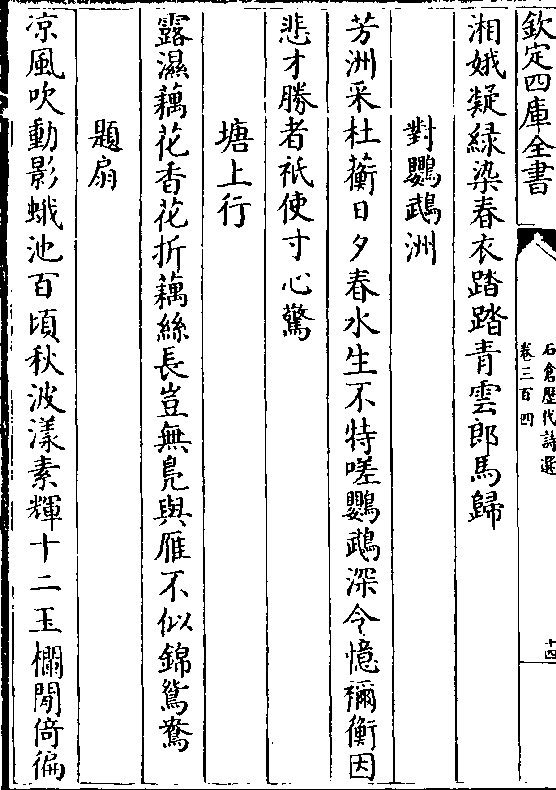 欽定四庫全書
石倉歷代詩選
卷三百四
十四
湘娥凝綠染春衣踏踏青雲郎馬歸
對鸚鵡洲
芳洲采杜蘅日夕春水生不特嗟鸚鵡深令憶禰衡因
悲才勝者祇使寸心驚
塘上行
露濕藕花香花折藕絲長豈無鳧與雁不似錦鴛鴦
題扇
凉風吹動影蛾池百頃秋波漾素輝十二玉欄閒倚徧